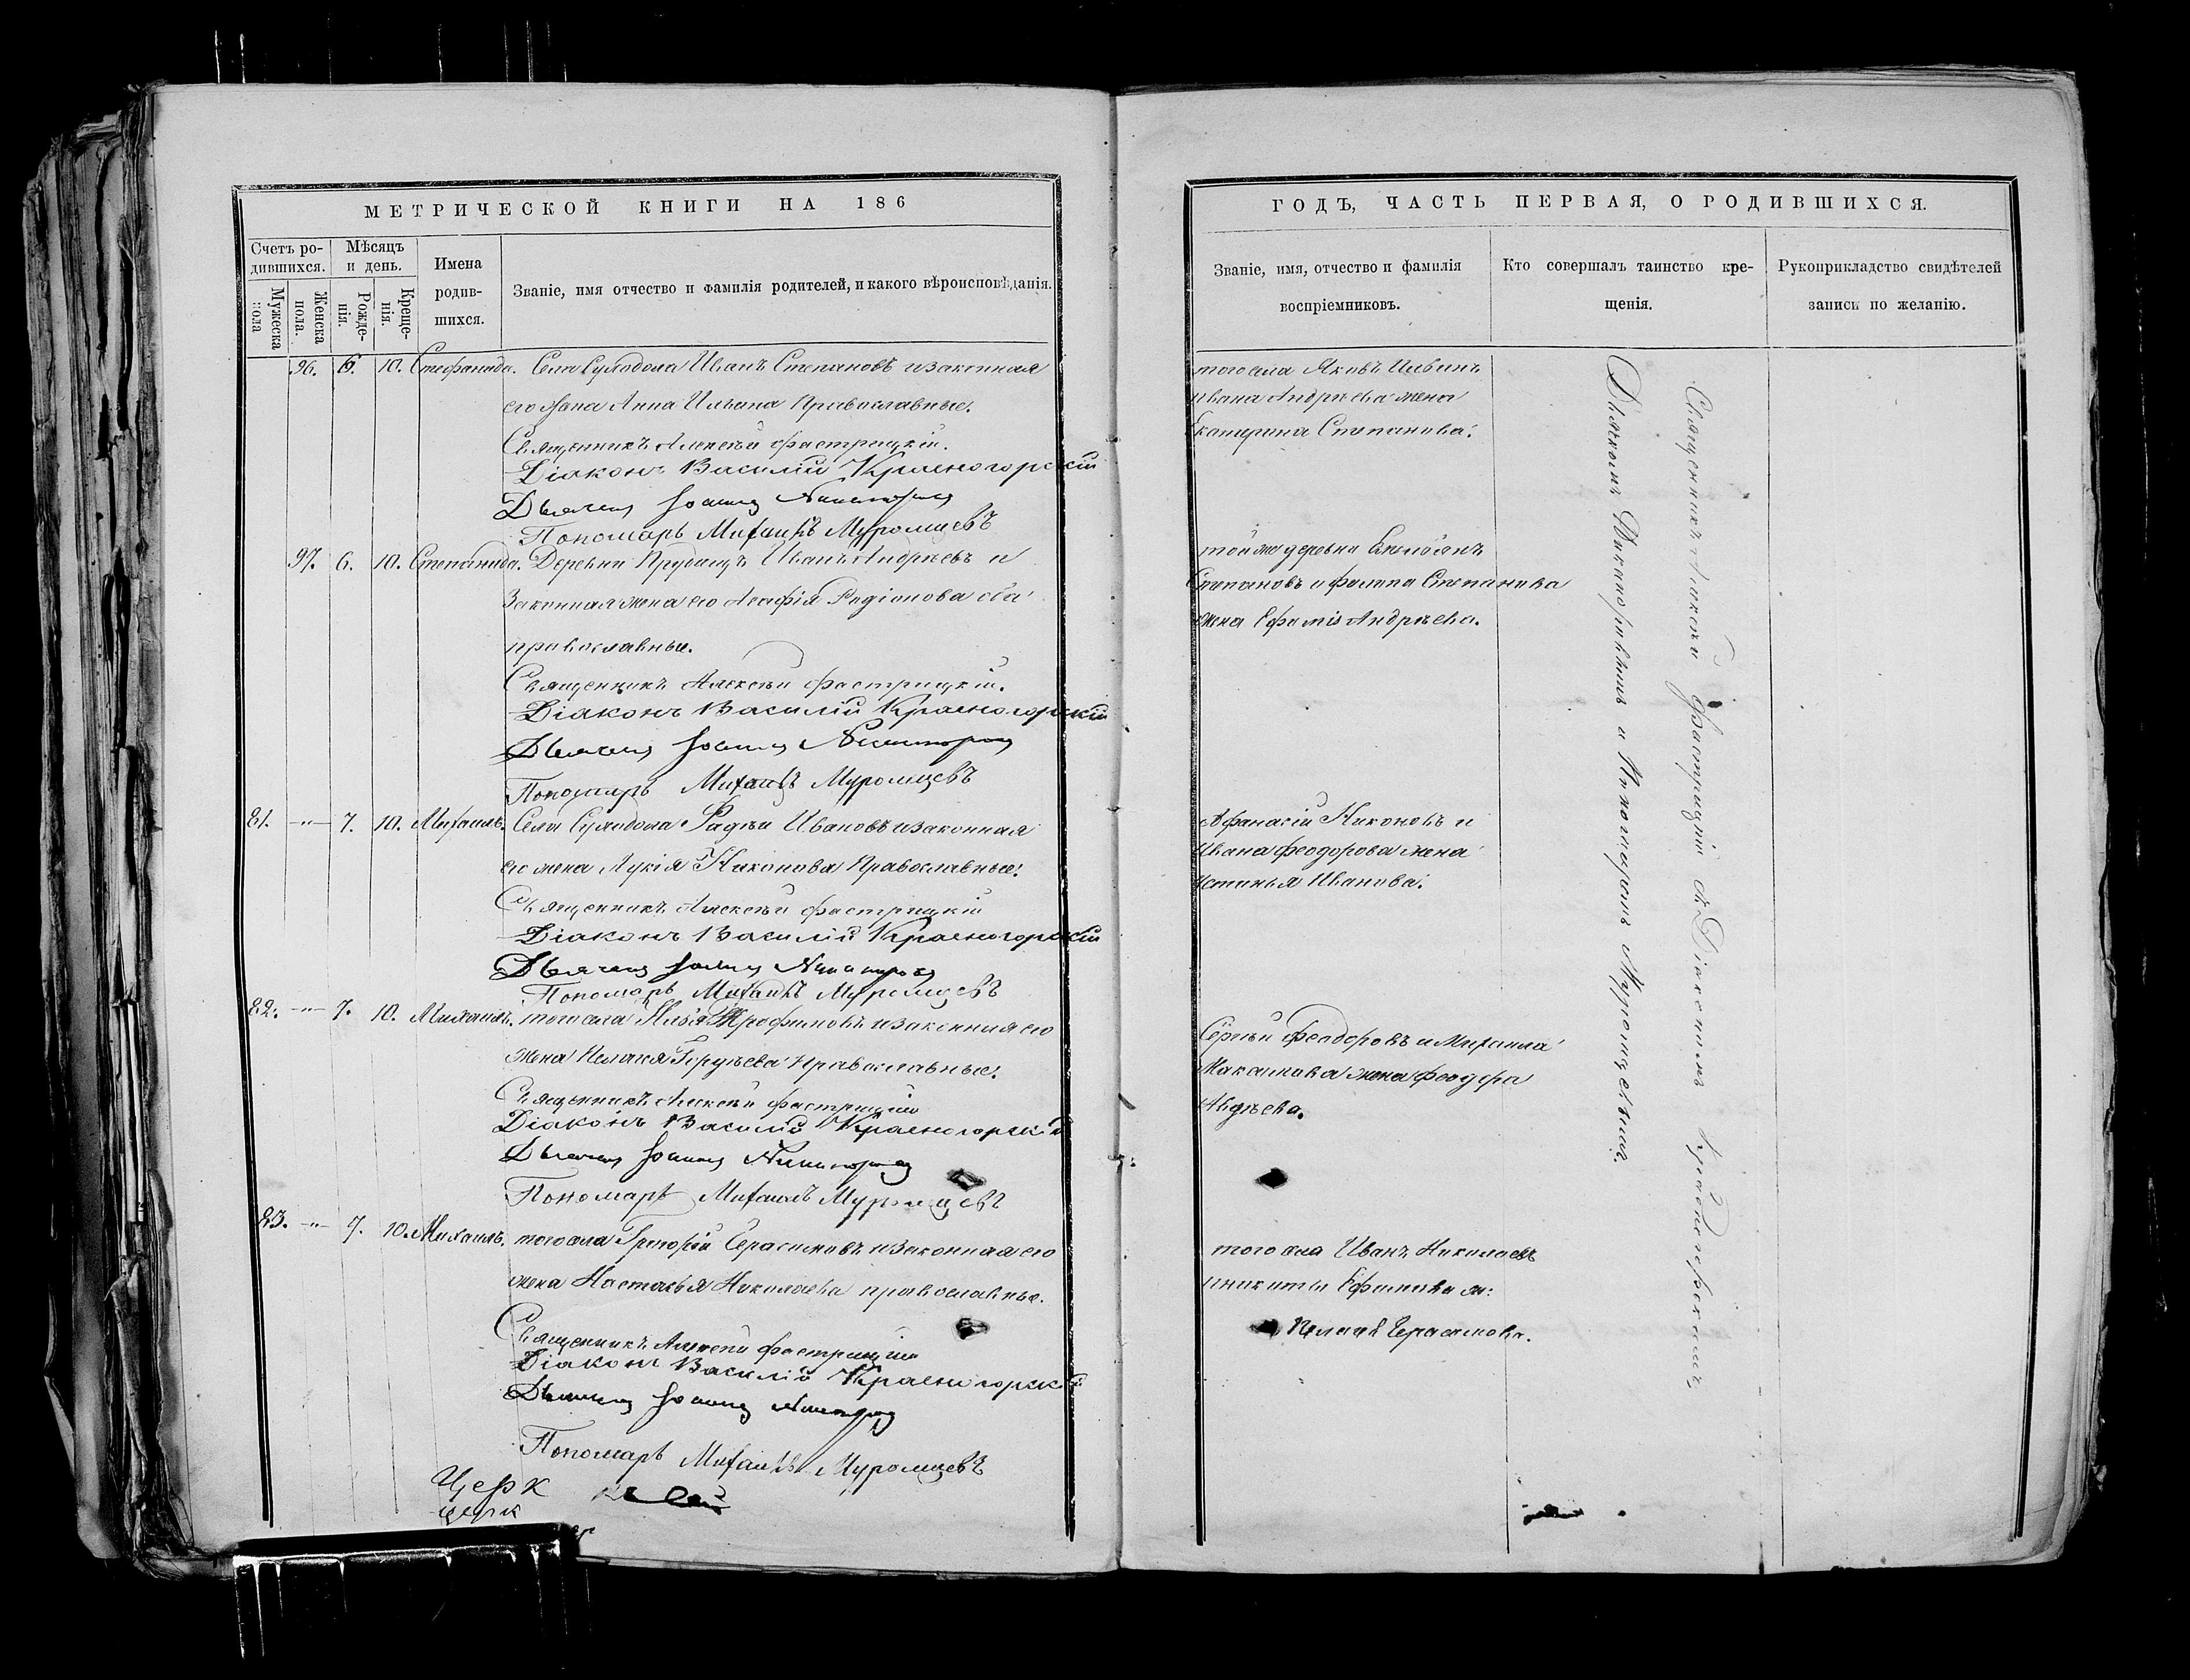 МЕТРИЧЕСКОЙ КНИГИ НА 186
Счетъ ро-
дившихся.
Мужеска
пола
Женска
пола.
Мѣсяцъ
и день.
Рожде-
нія.
Креще-
нія.
Имена
родив-
шихся.
Званіе, имя отчество и фамилія родителей, и какого вѣроисповѣданія.
96. 6. 10. Стефанида. Села Суходола Иванъ Степановъ и законная
его жена Анна Ильина Православные.
Священникъ Алексѣй Фастрицкій.
Діаконъ Василій Красногорскій
Дьячекъ Іоаннъ
Пономарь Михаилъ Муромцевъ
97. 6. 10. Степанида. Деревни Прудищъ Иванъ Андрѣевъ и
Законная жена его Агафія Родіонова оба
православные.
Священникъ Алексѣй Фастрицкій.
Діаконъ Василій Красногорскій
Дьячекъ Іоаннъ
Пономарь Михаилъ Муромцевъ
81. -"- 7. 10. Михаилъ. Села Суходола Фадѣй Ивановъ и законная
его жена Лукія Никонова Православные.
Священникъ Алексѣй Фастрицкій
Діаконъ Василій Красногорскій
Дьячекъ Іоаннъ
Пономарь Михаилъ Муромцевъ
82. -"- 7. 10. Михаилъ. того села Илья Трофимовъ и законная его
жена Пелагея Православные.
Священникъ Алексѣй Фастрицкій
Діаконъ Василій Красногорскій
Дьячекъ Іоаннъ
Пономарь Михаилъ Муромцевъ
83. -"- 7. 10. Михаилъ. того села Григорій Герасимовъ и законная его
жена Настасья Николаева православные.
Священникъ Алексѣй Фастрицкій
Діаконъ Василій Красногорскій
Дьячекъ Іоаннъ
Пономарь Михаилъ Муромцевъ
Церк
церк
ГОДЪ, ЧАСТЬ ПЕРВАЯ, О РОДИВШИХСЯ.
Званіе, имя, отчество и фамилія
воспріемниковъ.
Кто совершалъ таинство кре-
щенія.
Рукоприкладство свидѣтелей
записи по желанію.
того села Яковъ Ильинъ
Ивана Андрѣева жена
Екатерина Степанова.
той же деревни
Степановъ и Филипа Степанова
жена Ефимія Андрѣева.
Афанасій Никоновъ и
Ивана Феодорова жена
Устинья Иванова.
Сергѣй Феодоровъ и Михаила
Максимова жена Феодора
Авдѣева.
того села Иванъ Николаевъ
и Никиты Ефимова ж:
Пелагея Герасимова.
Священникъ Алексѣй Фастрицкій съ Діакономъ Красногорскимъ,
Дьячкомъ и Пономаремъ Муромцевымъ.